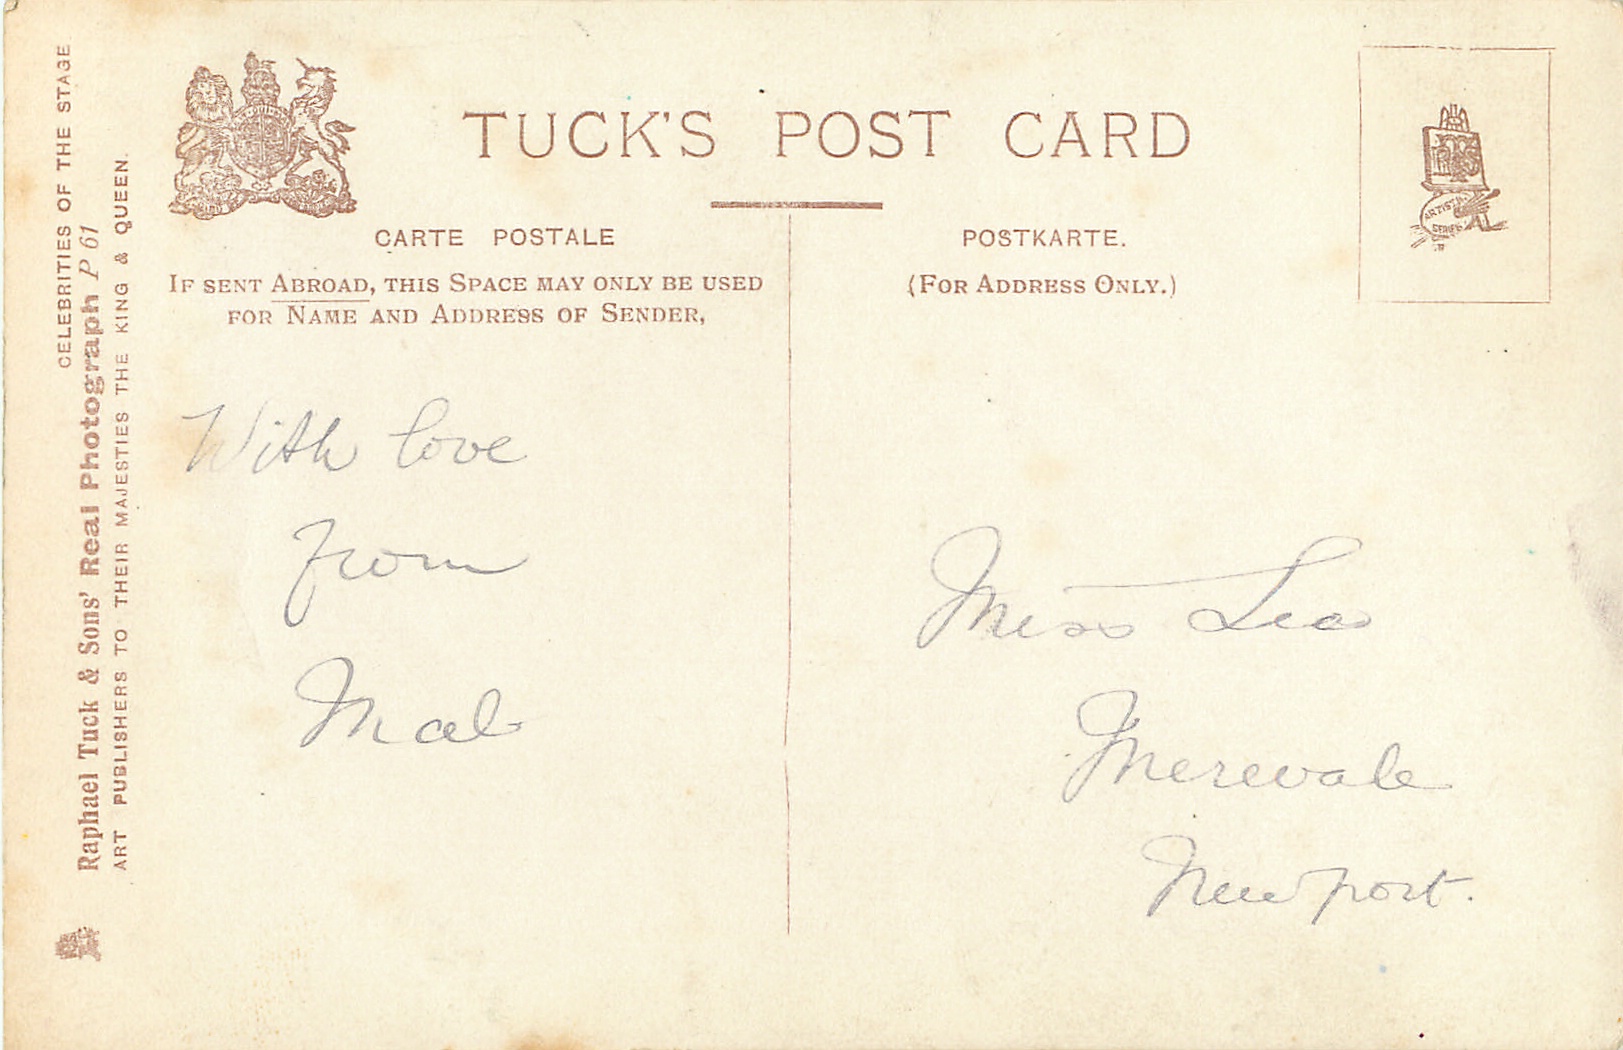 CELEBRITIES OF THE STAGE
Raphael Tuck & Sons' Real Photograph P 61
ART PUBLISHERS TO THEIR MAJESTIES THE KING & QUEEN.
TUCK'S POST CARD
CARTE POSTALE
POSTKARTE.
IF SENT ABROAD, THIS SPACE MAY ONLY BE USED
FOR NAME AND ADDRESS OF SENDER,
(FOR ADDRESS ONLY.)
ARTISTIC
SERIES
With love
from
Mal
Miss Lea
Merevale
Newport.